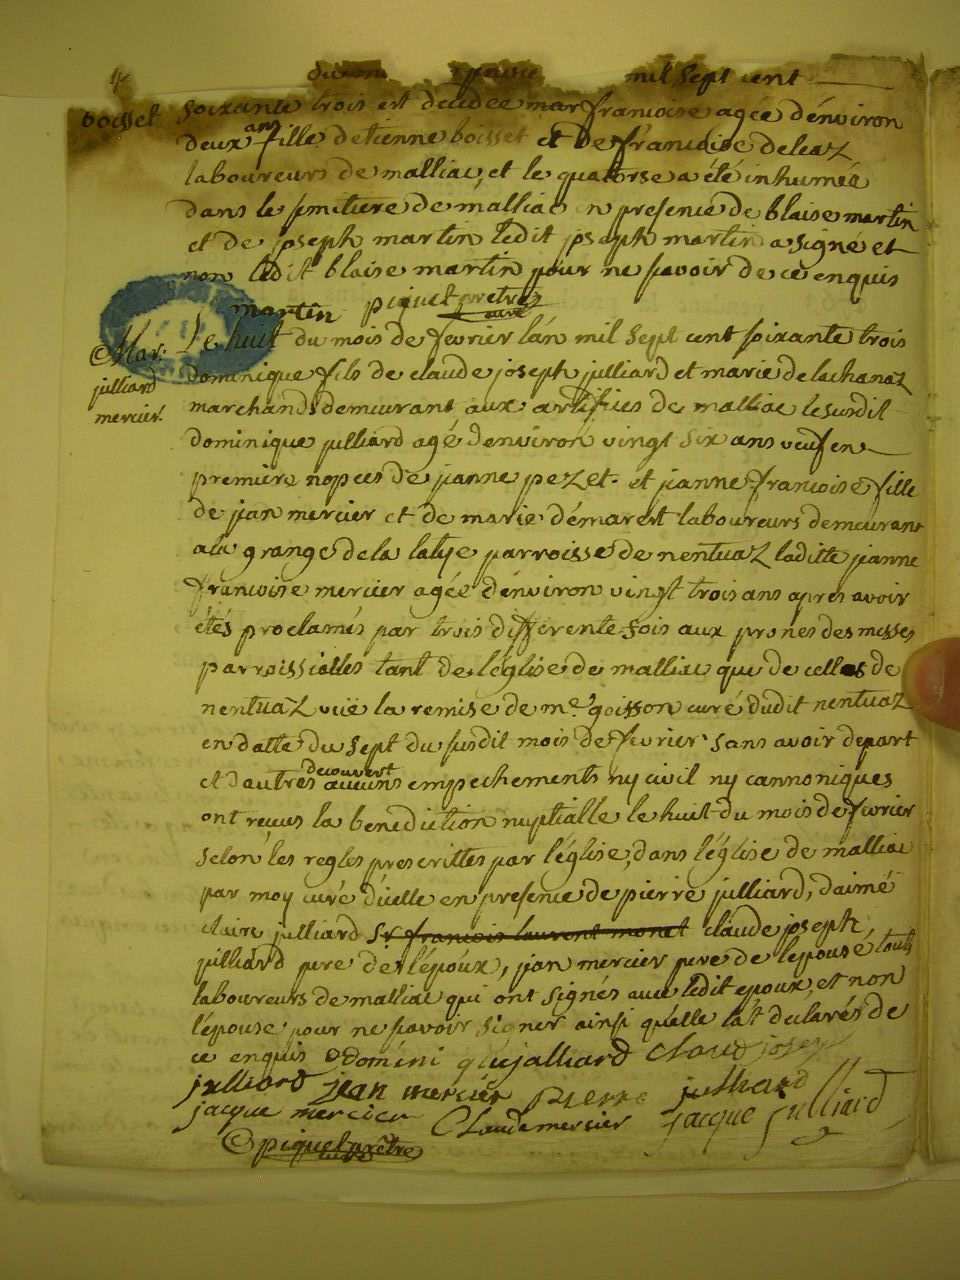 mil sept cent
boisset
soixante trois est décédée mar françoise agée d'environ
deux ans fille d'etienne boisset et de françoise deleaz
laboureurs de malliac, et le quatorse a été inhumée
dans le simitiere de malliac en presence de blaise martin
et de joseph martin ledit joseph martin a signé et
non ledit blaise martin pour ne savoir de ce enquis
martin piquet prêtre curé
Mar:
julliard
mercier.
Le huit du mois de fevrier lán mil sept cent soixante trois
dominique fils de claude joseph julliard et marie delachanaz
marchands demeurant aux artifices de malliac le susdit
dominique julliard agé denviron vingt six ans veuf en
premiere nopces de jeanne pezet. et jeanne françoise fille
de jean mercier et de marie démarest laboureurs demeurant
a la grange de la parroisse de nentuaz laditte jeanne
françoise mercier agée d'énviron vingt trois ans apres avoir
étés proclamés par trois differente fois aux prones des messes
parroissialles tant de l'église de malliac que de celles de
nentuaz vüe la remise de me goisson curé dudit nentuaz
en datte du sept du susdit mois de fevrier sans avoir depart
et dautres découvert aucuns empechements ny civil ny cannoniques
ont reçus la benediction nuptialle le huit du mois de fevrier
selon les regles prescrittes par l'église, dans l'église de malliac
par moy curé d'icelle en presence de pierre julliard, d'aimé
claire julliard Sr françois laurent monet claude joseph
julliard pere de l'époux, jean mercier pere de l'epouse touts
laboureurs de malliac qui ont signés avec ledit epoux, et non
l'épouse pour ne savoir signer ainsi qu'elle l'at declarés de
ce enquis domini que julliard claud joseph
julliard jean mercier pierre julliard
jacque mercier Claude mercier jacque julliard
piquet prêtre curé